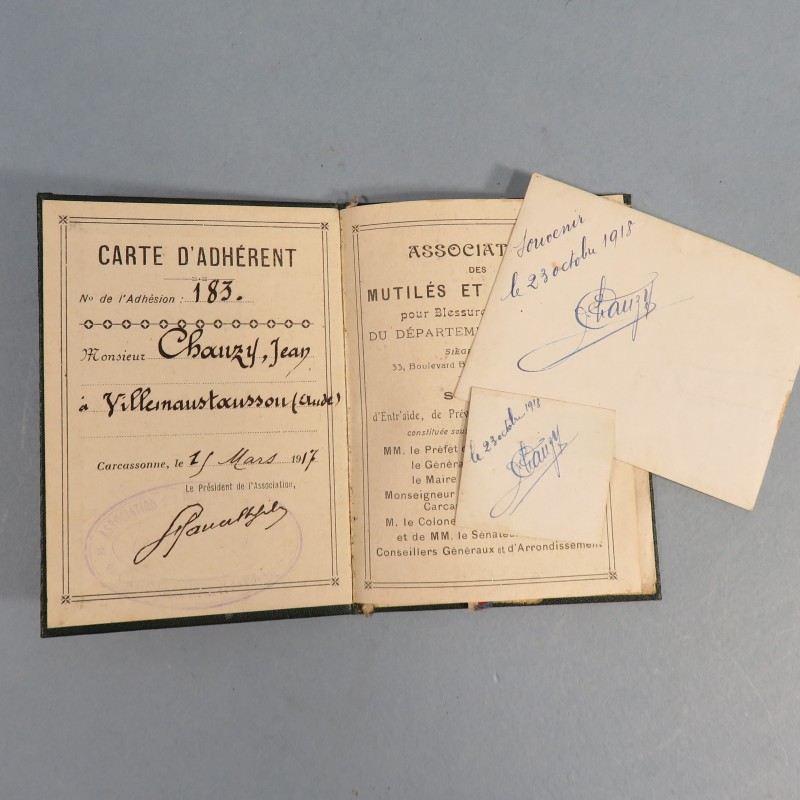 CARTE D'ADHÉRENT
No de l'Adhésion : 183.
Monsieur Chauzy, Jean
à Villemaustaussou (Aude)
Carcassonne, le 15 Mars 1917
Le Président de l'Association,
ASSOCIATION
ASSOCIAT
DES
MUTILÉS ET
pour Blessur
DU DÉPARTEME
SIÈG
33, Boulevard B
S
d'Entr'aide, de Prév
constituée sou
MM. le Préfet
le Généra
le Maire
Monseigneur
Carca
M. le Colone
et de MM. le Sénate
Conseillers Généraux et d'Arrondissement
Souvenir
le 23 octobre 1918
Chauzy
le 23 octobre 1918
Chauzy